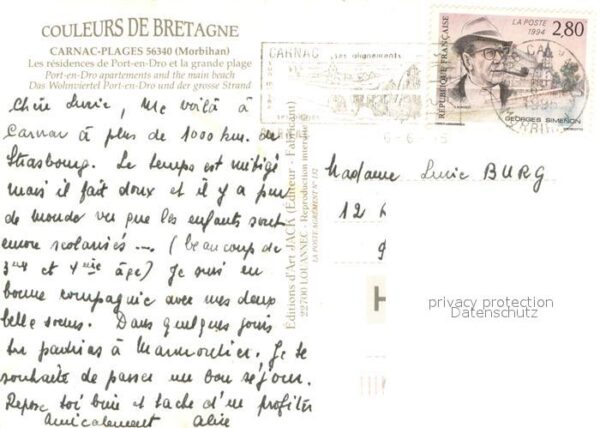 COULEURS DE BRETAGNE
CARNAC-PLAGES 56340 (Morbihan)
Les résidences de Port-en-Dro et la grande plage
Port-en-Dro apartements and the main beach
Das Wolnviertel Port-en-Dro und der grosse Strand
Chère Lucie, Me voilà à
Carnac à plus de 1000 km. de
Strasbourg. Le temps est mitigé
mais il fait doux et il y a peu
de monde vu que les enfants sont
encore scolarisés --- (beaucoup de
3me et 4me âge) Je suis en
bonne compagnie avec mes deux
belle soeurs. Dans quelques jours
tu partiras à Marmoutier, je te
souhaite de passer un bon séjour.
Repose toi bien et tache d'en profiter
Amicalement Alice
Editions d'Art JACK (Editeur - Fabricant)
22700 LOUANNEC - Reproduction interdite
LA POSTE AGRÉMENT N° 132
CARNAC Les alignements
RÉPUBLIQUE FRANÇAISE
LA POSTE
1994
2,80
GEORGES SIMENON
Madame Lucie BURG
12
privacy protection
Datenschutz